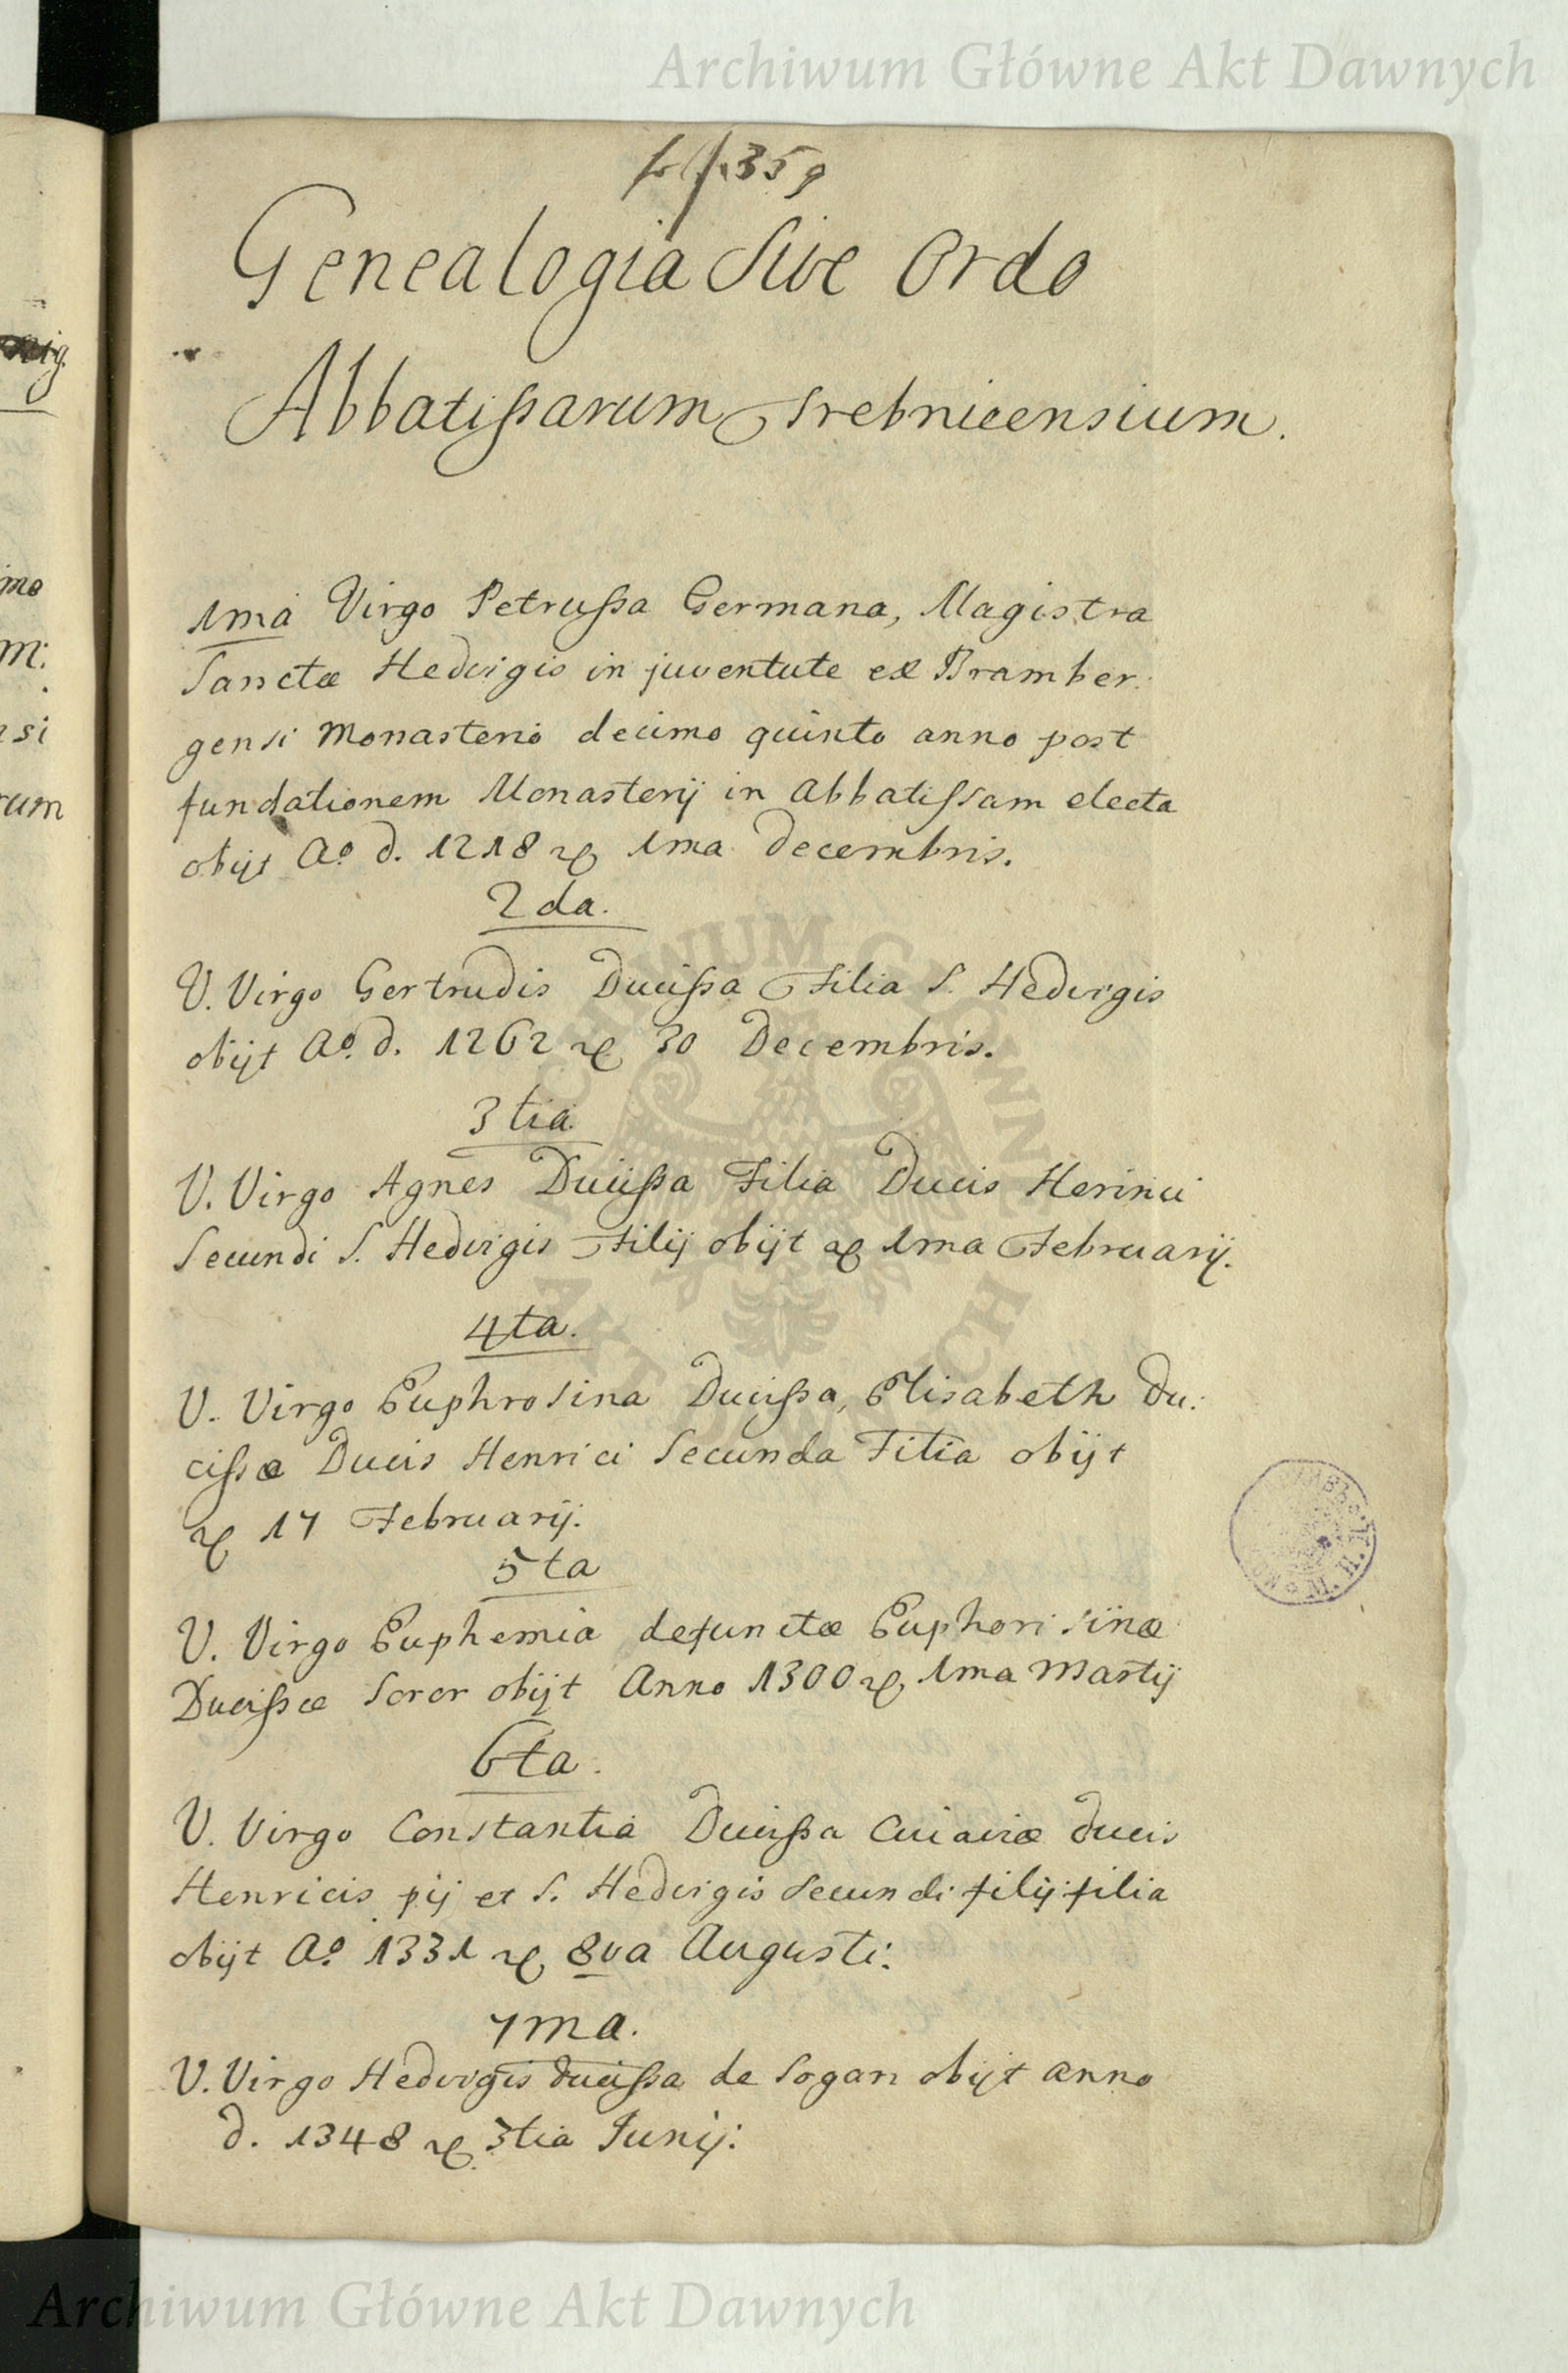 Archiwum Główne Akt Dawnych
359
Genealogia Sive Ordo
Abbatissarum Trebnicensium.
1ma Virgo Petrussa Germana, Magistra
Sanctæ Hedvigis in juventute ex Bramber:
gensi Monasterio decimo quinto anno post
fundationem Monasterij in Abbatissam electa
obijt Ao. d. 1218 1ma Decembris.
2da.
V. Virgo Gertrudis Ducissa Filia S. Hedvigis
obijt Ao. d. 1262 30 Decembris.
3tia
V. Virgo Agnes Ducissa Filia Ducis Herinci
Secundi S. Hedvigis Filij obijt 1ma Februarij.
4ta.
V. Virgo Euphrosina Ducissa, Elisabeth Du:
cissæ Ducis Henrici Secunda Filia obijt
17 Februarij:
5ta
V. Virgo Euphemia defunctæ Euphorisinæ
Ducissæ Soror obijt Anno 1300 1ma Martij
6ta.
V. Virgo Constantia Ducissa Cuiaviæ Ducis
Henricis pij et S. Hedvigis Secundi filij filia
obijt Ao. 1331 8va Augusti:
7ma.
V. Virgo Hedvigis Ducissa de Sogan obijt anno
d. 1348 3tia Junij:
Archiwum Główne Akt Dawnych